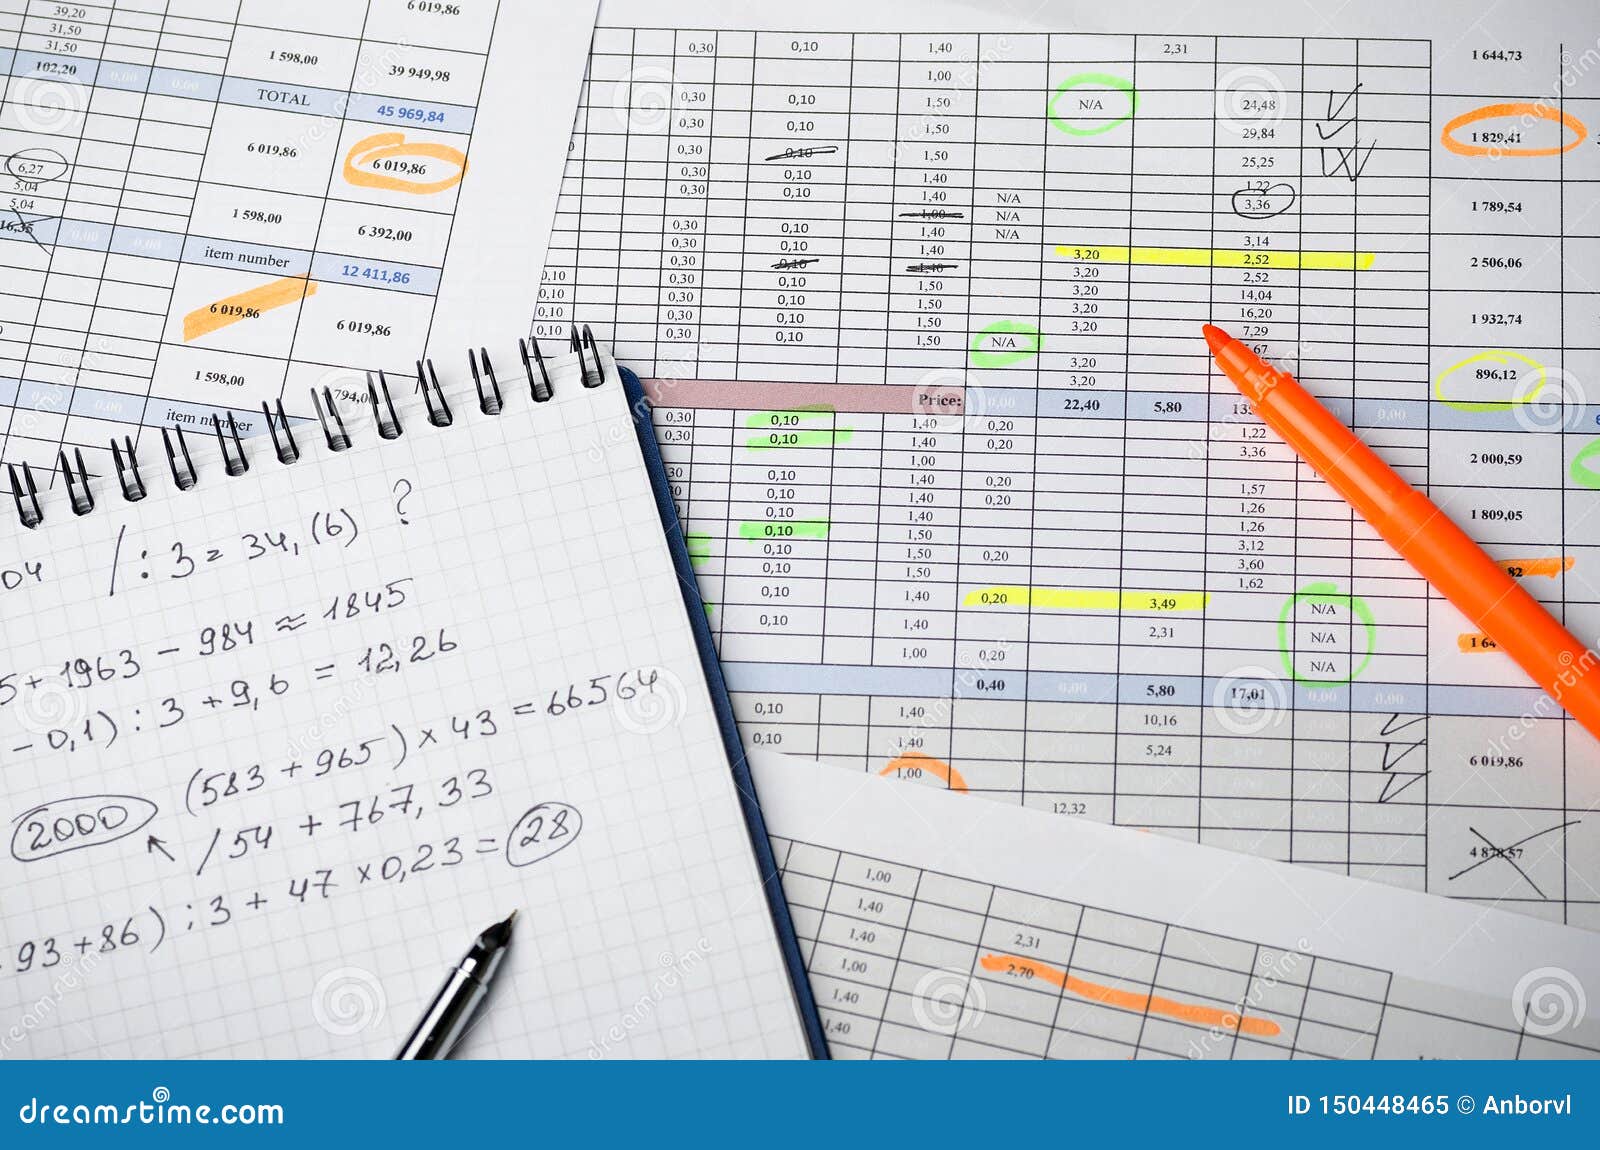 39,20
31,50
31,50
102,20 0,00 0,00
6,27
5,04
5,04
16,35 0,00 0,00
6 019,86
1 598,00 39 949,98
TOTAL 45 969,84
6 019,86 6 019,86
1 598,00 6 392,00
item number 12 411,86
6 019,86 6 019,86
1 598,00 794,00
item number
0,30 0,10 1,40 2,31
1,00
0,30 0,10 1,50 N/A 24,48
0,30 0,10 1,50 29,84
0,30 0,10 1,50 25,25
0,30 0,10 1,40 1,22
0,30 0,10 1,40 N/A 3,36
1,00 N/A
0,30 0,10 1,40 N/A
0,30 0,10 1,40 3,14
0,30 0,10 1,40 3,20 2,52
0,10 0,30 0,10 1,50 3,20 2,52
0,10 0,30 0,10 1,50 3,20 14,04
0,10 0,30 0,10 1,50 3,20 16,20
0,10 0,30 0,10 1,50 N/A 3,20 7,29
3,20
3,20
Price: 0,00 22,40 5,80 0,00 0,00
0,30 0,10 1,40 0,20 1,22
0,30 0,10 1,40 0,20 3,36
1,00
0,10 1,40 0,20 1,57
0,10 1,40 0,20 1,26
0,10 1,40 1,26
0,10 1,50 3,12
0,10 1,50 0,20 3,60
0,10 1,50 1,62
0,10 1,40 0,20 3,49 N/A
0,10 1,40 2,31 N/A
1,00 0,20 N/A
0,40 0,00 5,80 17,01 0,00 0,00
0,10 1,40 10,16
0,10 1,40 5,24
1,00
12,32
1 644,73
1 829,41
1 789,54
2 506,06
1 932,74
896,12
2 000,59
1 809,05
82
1 64
6 019,86
4 878,57
1,00
1,40
1,40 2,31
1,00 2,70
1,40
1,40
04 / : 3 = 34,(6) ?
5 + 1963 - 984 ≈ 1845
- 0,1) : 3 + 9,6 = 12,26
(583 + 965) × 43 = 66564
2000 / 54 + 767,33
93 + 86) : 3 + 47 × 0,23 = 28
dreamstime.com
ID 150448465 © Anborvl